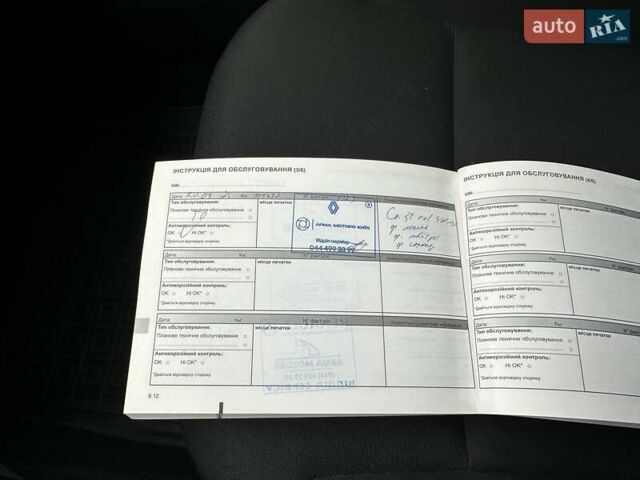 auto RIA
.com
ІНСТРУКЦІЯ ДЛЯ ОБСЛУГОВУВАННЯ (3/6)
VIN:
Дата: Км: № фактури
Тип обслуговування:
Планове технічне обслуговування
10
місце печатки
Антикорозійний контроль:
OK Ні OK*
*Дивіться відповідну сторінку
АРМА МОТОРС КИЇВ
Відділ сервісу
044 499 99 99
Дата: Км: № фактури
Тип обслуговування:
Планове технічне обслуговування
місце печатки
Антикорозійний контроль:
OK Ні OK*
*Дивіться відповідну сторінку
Дата: Км: № фактури
Тип обслуговування:
Планове технічне обслуговування
місце печатки
Антикорозійний контроль:
OK Ні OK*
*Дивіться відповідну сторінку
6.12
ІНСТРУКЦІЯ ДЛЯ ОБСЛУГОВУВАННЯ (4/6)
VIN:
Дата: Км:
Тип обслуговування:
Планове технічне обслуговування
місце печатки
Антикорозійний контроль:
OK Ні OK*
*Дивіться відповідну сторінку
Дата: Км: № фактури
Тип обслуговування:
Планове технічне обслуговування
місце печатки
Антикорозійний контроль:
OK Ні OK*
*Дивіться відповідну сторінку
Дата: Км: № фактури
Тип обслуговування:
Планове технічне обслуговування
місце печатки
Антикорозійний контроль:
OK Ні OK*
*Дивіться відповідну сторінку